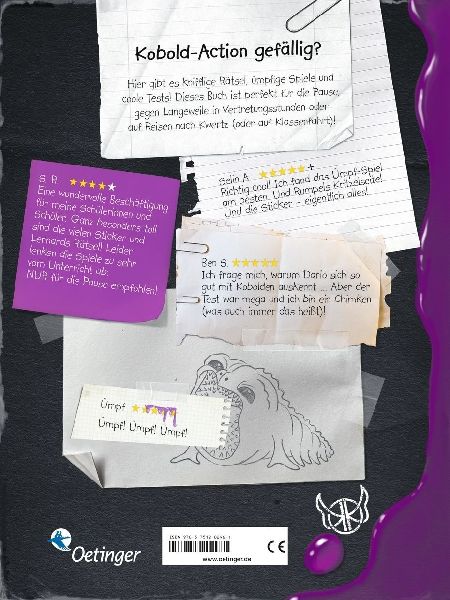 Kobold-Action gefällig?
Hier gibt es knifflige Rätsel, ümpfige Spiele und
coole Tests! Dieses Buch ist perfekt für die Pause,
gegen Langeweile in Vertretungsstunden oder
auf Reisen nach Kwertz (oder auf Klassenfahrt)!
Selin A. ★★★★★+
Richtig cool! Ich fand das Ümpf-Spiel
am besten. Und Rumpels Kritzelseite!
Und die Sticker – eigentlich alles!
S. R. ★★★★★
Eine wundervolle Beschäftigung
für meine Schülerinnen und
Schüler. Ganz besonders toll
sind die vielen Sticker und
Lernards Rätsel! Leider
lenken die Spiele zu sehr
vom Unterricht ab.
NUR für die Pause empfohlen!
Ben S. ★★★★★
Ich frage mich, warum Dario sich so
gut mit Kobolden auskennt ... Aber der
Test war mega und ich bin ein Chimken
(was auch immer das heißt)!
Ümpf
Ümpf! Ümpf! Ümpf!
Oetinger
www.oetinger.de
CE